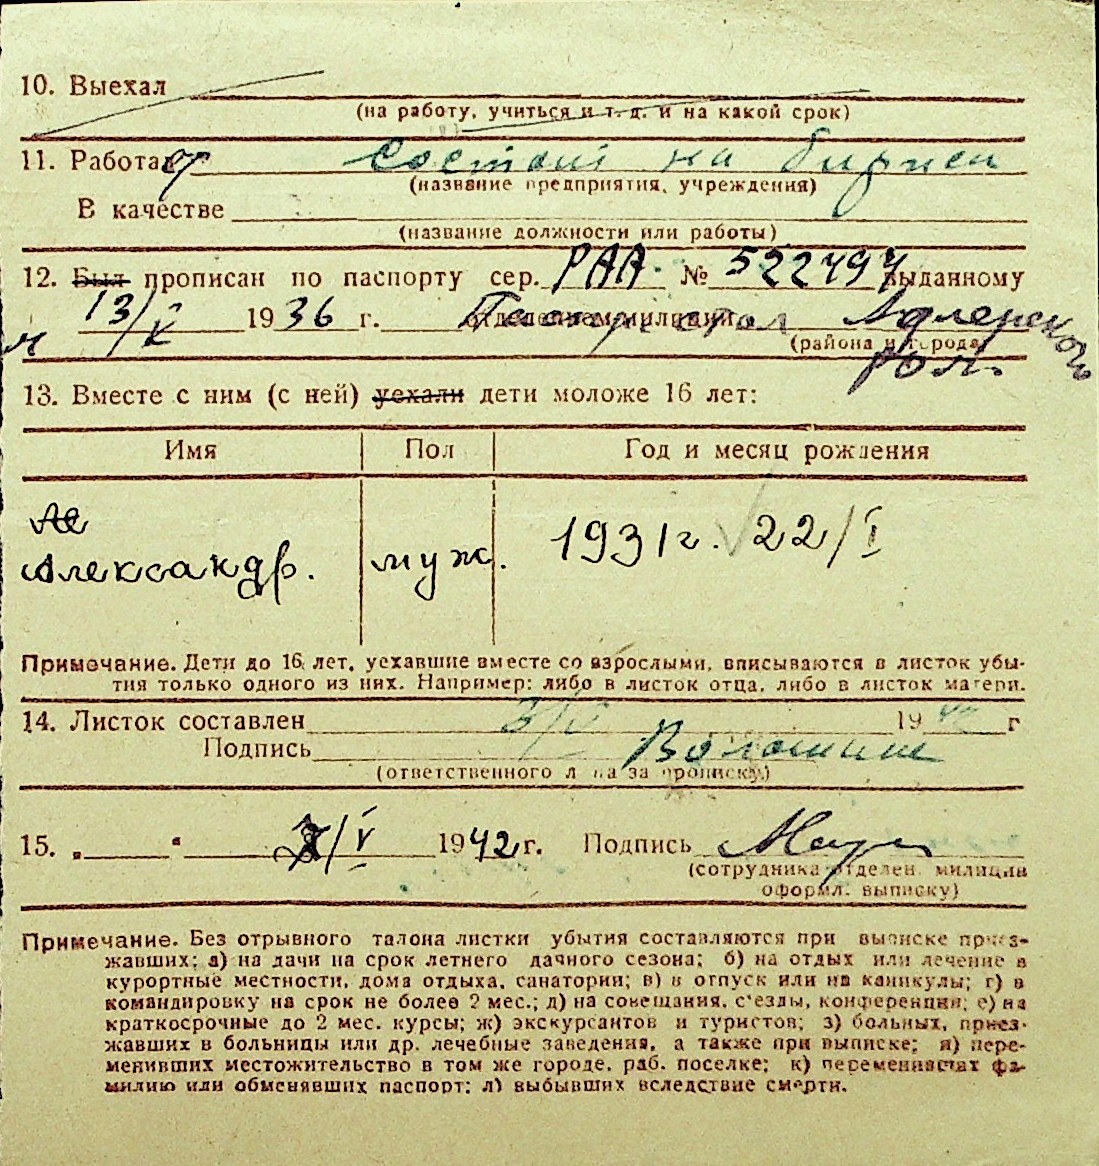 10. Выехал
(на работу, учиться и т. д. и на какой срок)
11. Работает состоит на бирже
(название предприятия, учреждения)
В качестве
(название должности или работы)
12. Был прописан по паспорту сер. РАА № 522797 выданному
13/V 1936 г. отделением милиции Адлерской
(района и города)
13. Вместе с ним (с ней) уехали дети моложе 16 лет:
Имя Пол Год и месяц рождения
Але
Александр. муж. 1931г. 22/I
Примечание. Дети до 16 лет, уехавшие вместе со взрослыми, вписываются в листок убы-
тия только одного из них. Например: либо в листок отца, либо в листок матери.
14. Листок составлен 3/V 1942 г
Подпись Волошин
(ответственного лица за прописку)
15. „ “ V 1942 г. Подпись
(сотрудника отделен. милиции
оформл. выписку)
Примечание. Без отрывного талона листки убытия составляются при выписке приез-
жавших: а) на дачи на срок летнего дачного сезона; б) на отдых или лечение в
курортные местности, дома отдыха, санатории; в) в отпуск или на каникулы; г) в
командировку на срок не более 2 мес.; д) на совещания, с'езды, конференции; е) на
краткосрочные до 2 мес. курсы; ж) экскурсантов и туристов; з) больных, приез-
жавших в больницы или др. лечебные заведения, а также при выписке; и) пере-
менивших местожительство в том же городе, раб. поселке; к) переменивших фа-
милию или обменявших паспорт; л) выбывших вследствие смерти.